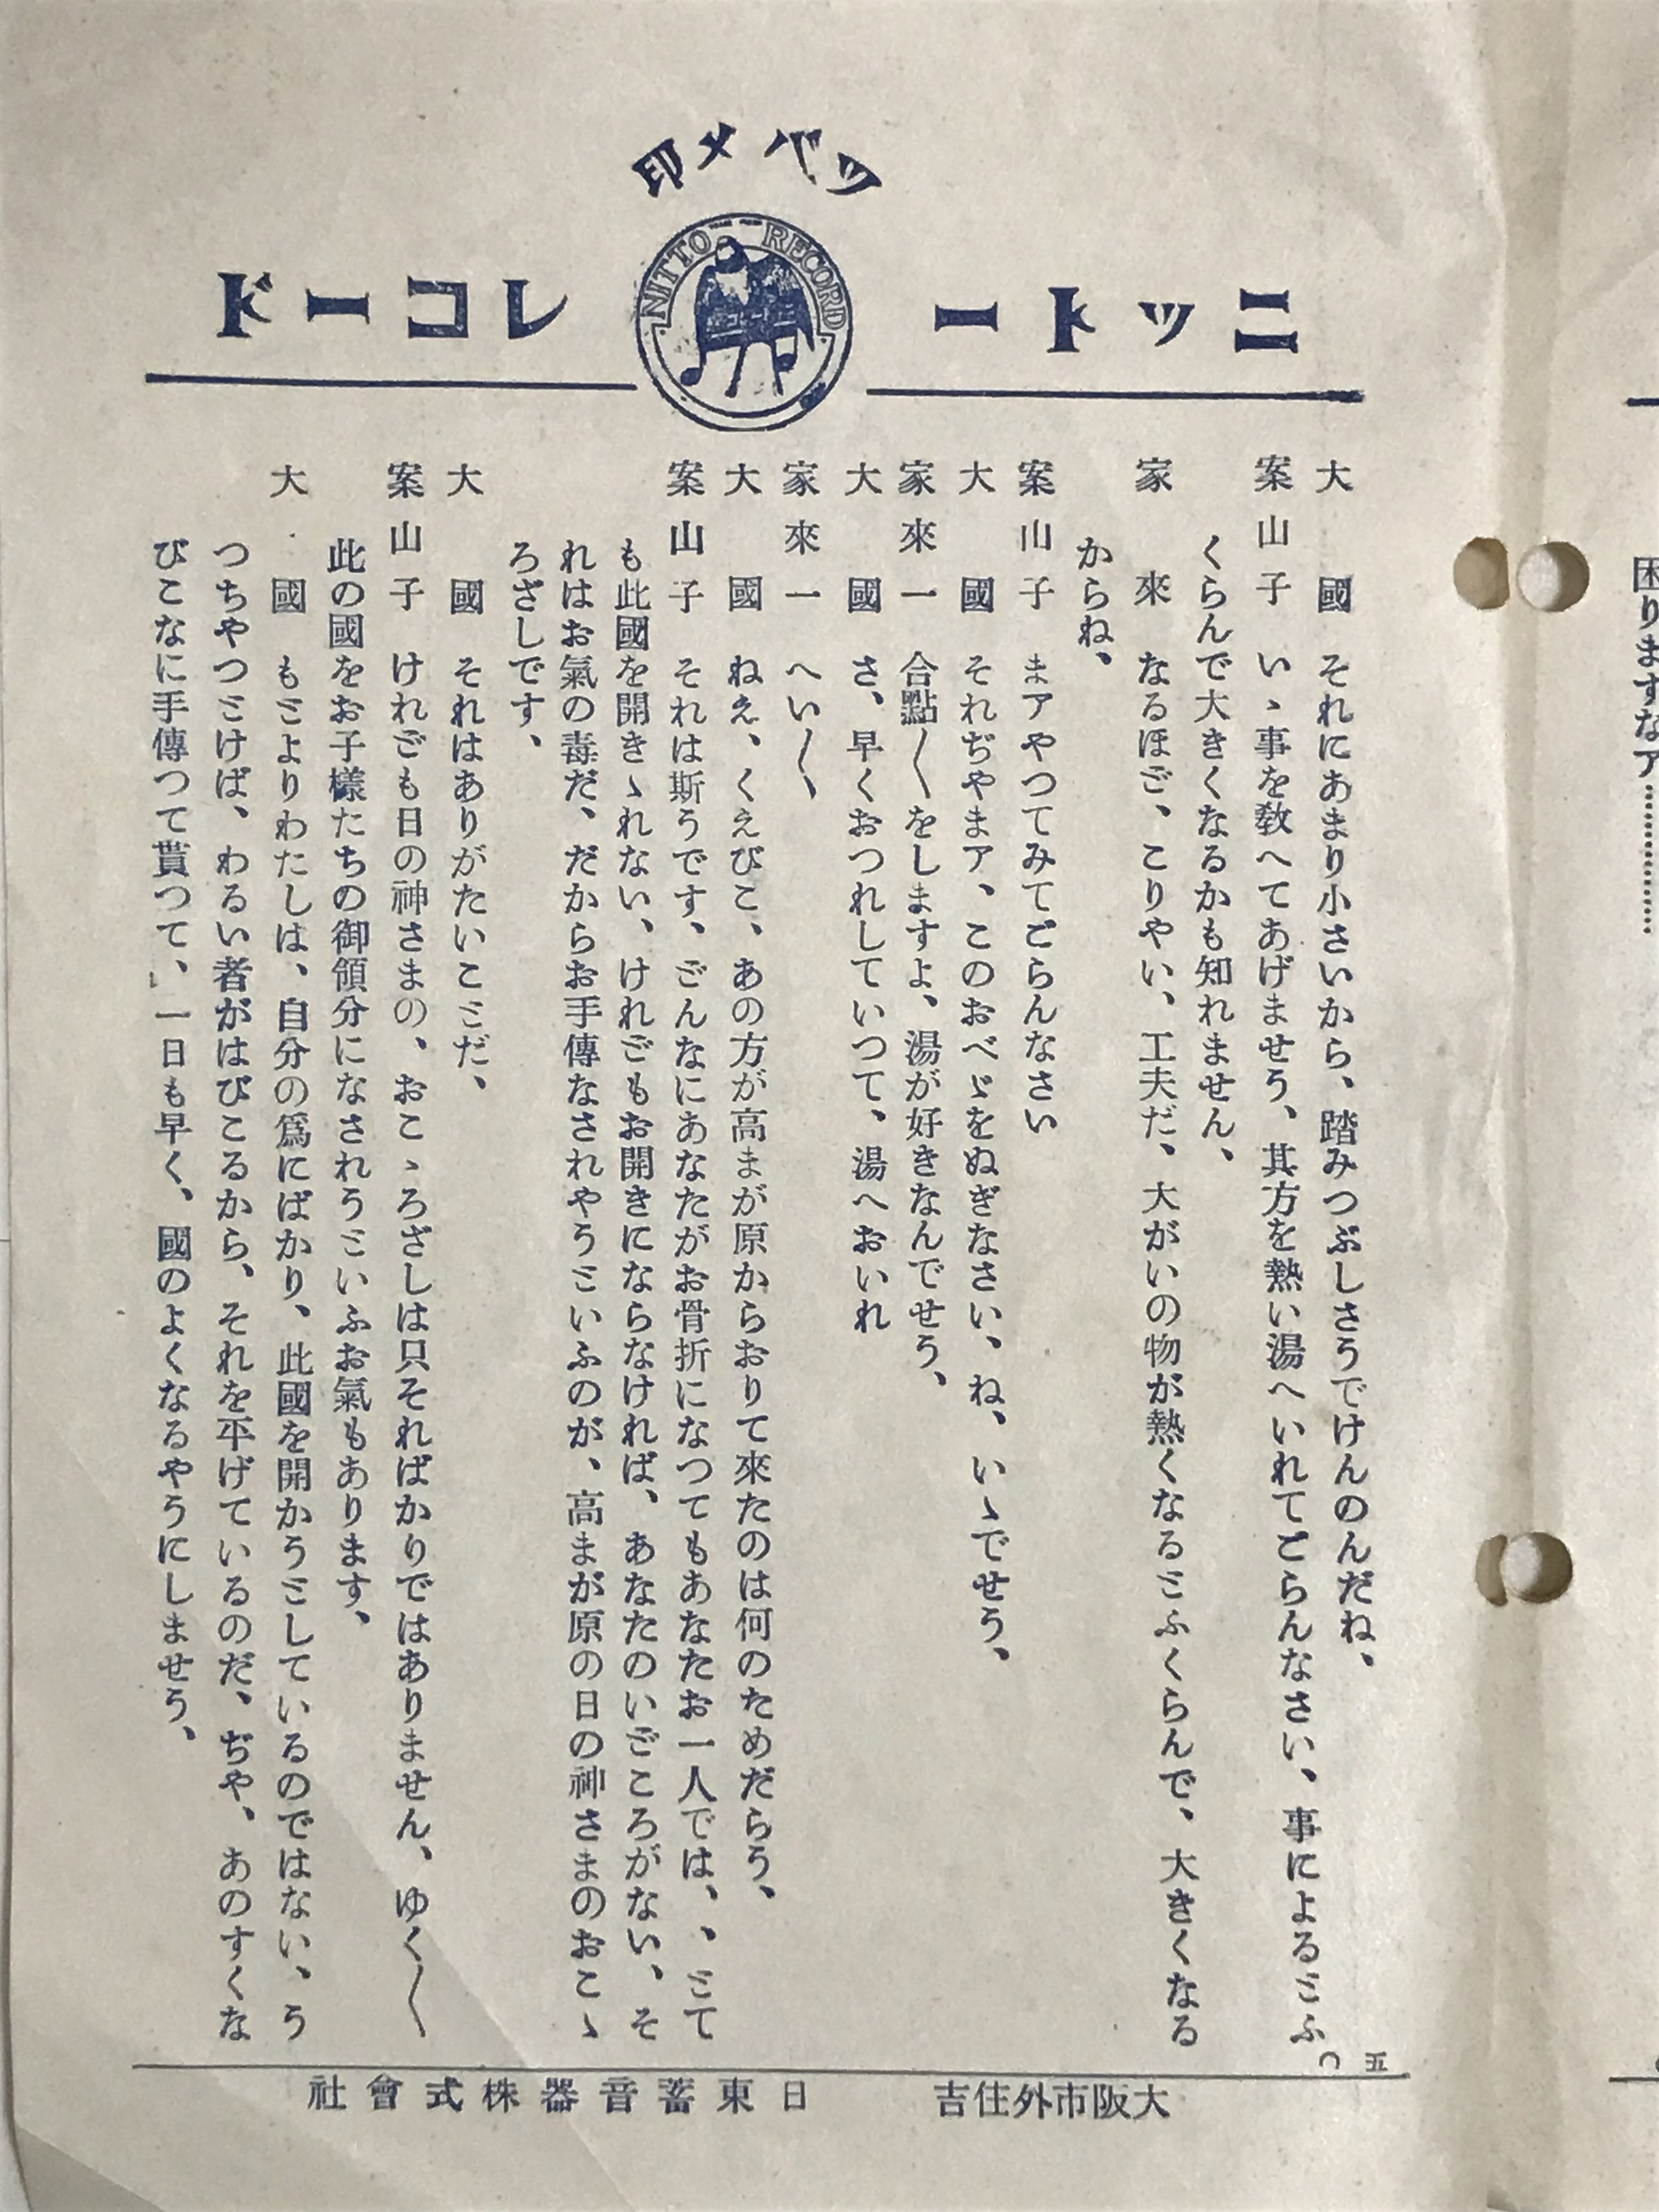 ツバメ印
ニットー
レコード
NITTO RECORD
大國　それにあまり小さいから、踏みつぶしさうでけんのんだね、
案山子　いゝ事を敎へてあげませう、其方を熱い湯へいれてごらんなさい、事によるとふ
くらんで大きくなるかも知れません、
家來　なるほど、こりやい、工夫だ、大がいの物が熱くなるとふくらんで、大きくなる
からね、
案山子　まアやつてみてごらんなさい
大國　それぢやまア、このおべゞをぬぎなさい、ね、いゝでせう、
家來一　合點〳〵をしますよ、湯が好きなんでせう、
大國　さ、早くおつれしていつて、湯へおいれ
家來一　へい〳〵、
大國　ねえ、くえびこ、あの方が高まが原からおりて來たのは何のためだらう、
案山子　それは斯うです、どんなにあなたがお骨折になつてもあなたお一人では、、とて
も此國を開きゝれない、けれどもお開きにならなければ、あなたのいどころがない、そ
れはお氣の毒だ、だからお手傳なされやうといふのが、高まが原の日の神さまのおこゝ
ろざしです、
大國　それはありがたいことだ、
案山子　けれども日の神さまの、おこゝろざしは只そればかりではありません、ゆく〳〵
此の國をお子樣たちの御領分になされうといふお氣もあります、
大國　もとよりわたしは、自分の爲にばかり、此國を開かうとしているのではない、う
つちやつとけば、わるい者がはびこるから、それを平げているのだ、ぢや、あのすくな
びこなに手傳つて貰つて、一日も早く、國のよくなるやうにしませう、
五〇
大阪市外住吉　日東蓄音器株式會社
困りますなア…………